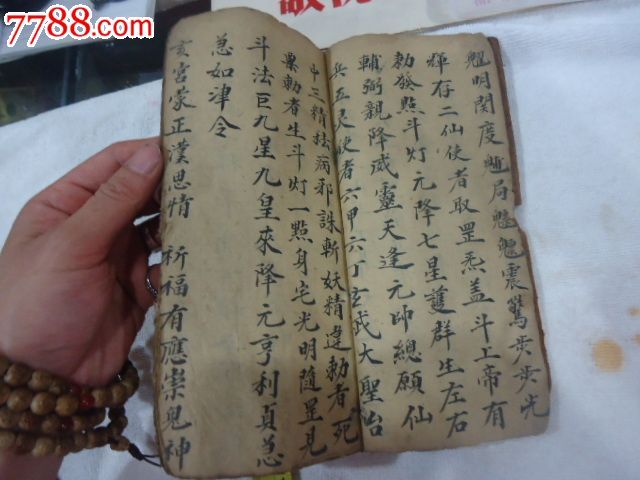 7788.com
魁明関度魓局魁魓震驚步步光
輝存二仙使者取罡炁蓋斗上帝有
勅發點斗灯元降七星護群生左右
輔弼親降威靈天逢元帥總願仙
兵五灵使者六甲六丁玄武大聖治
中三精扶病邪誅斬妖精違勅者死
稟勅者生斗灯一點身宅光明隨罡見
斗法巨九星九皇來降元亨利貞急
急如津令
玄宮蒙正漢思情 祈福有應崇鬼神